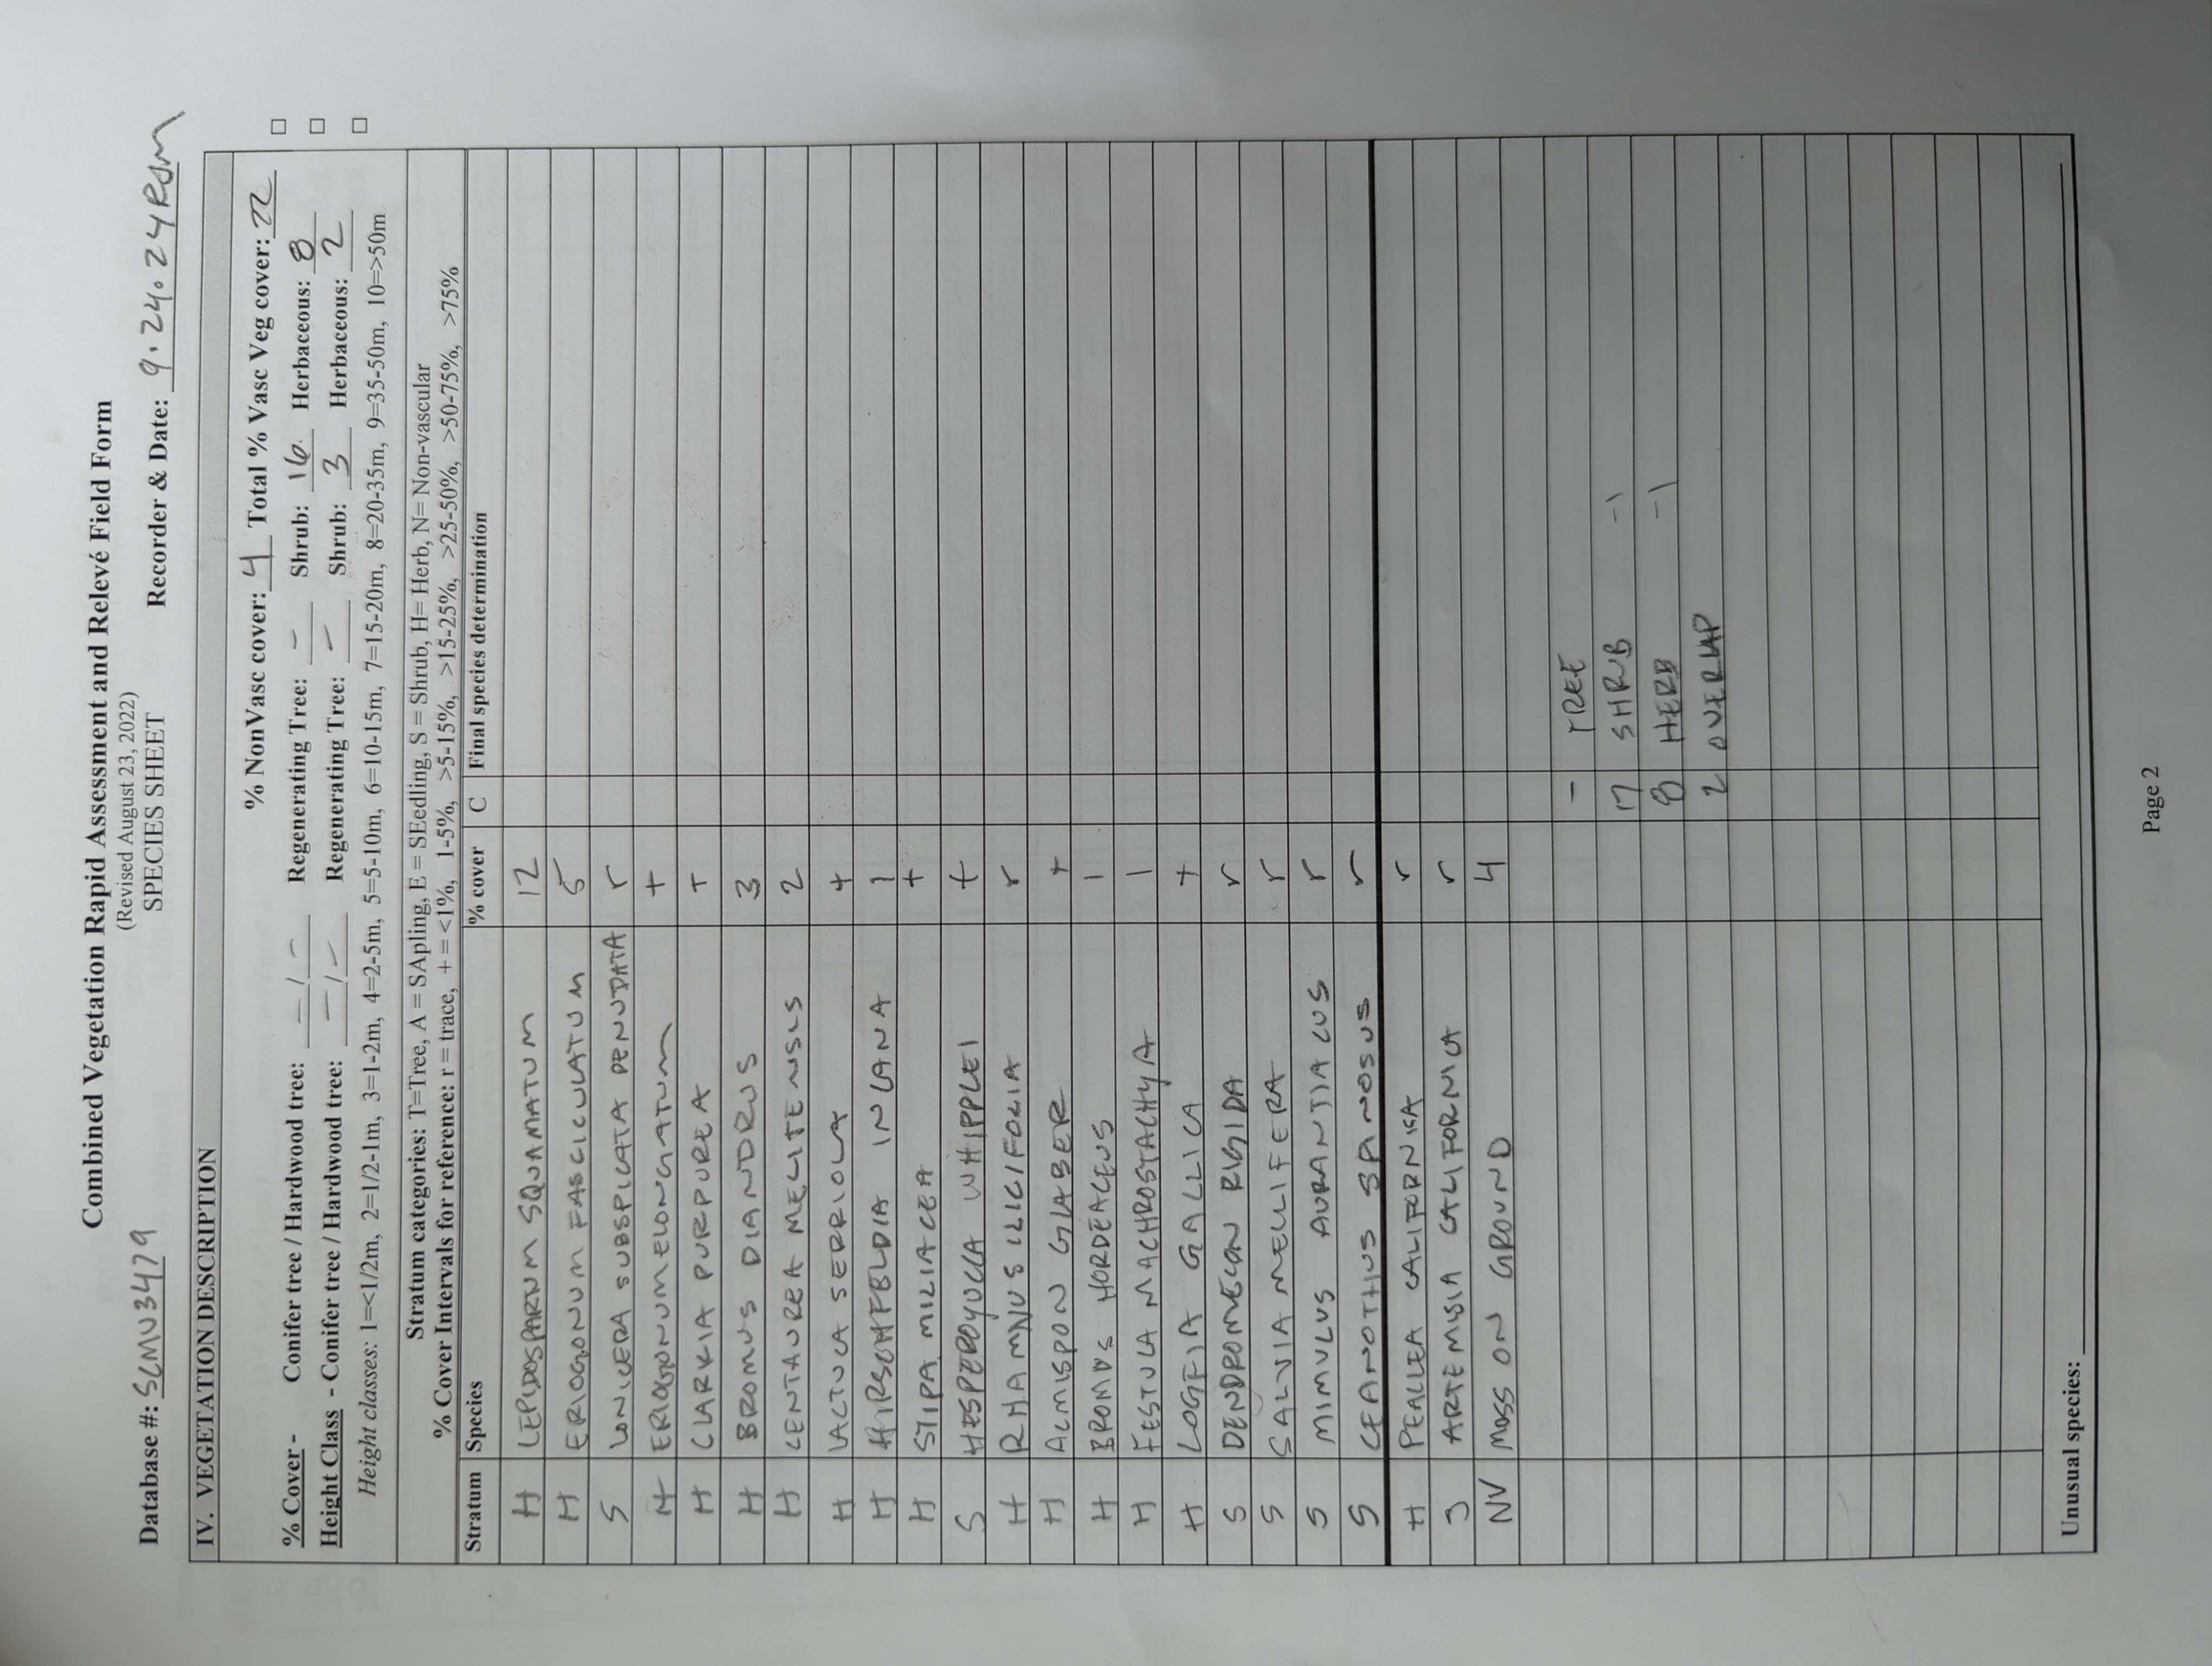 Combined Vegetation Rapid Assessment and Relevé Field Form
(Revised August 23, 2022)
SPECIES SHEET
Database #: SCMU3479 Recorder & Date: 9.24.24 RSM
IV. VEGETATION DESCRIPTION
% NonVasc cover: 4 Total % Vasc Veg cover: 22 □
% Cover - Conifer tree / Hardwood tree: - / - Regenerating Tree: - Shrub: 16 Herbaceous: 8 □
Height Class - Conifer tree / Hardwood tree: - / - Regenerating Tree: - Shrub: 3 Herbaceous: 2 □
Height classes: 1=<1/2m, 2=1/2-1m, 3=1-2m, 4=2-5m, 5=5-10m, 6=10-15m, 7=15-20m, 8=20-35m, 9=35-50m, 10=>50m
Stratum categories: T=Tree, A = SApling, E = SEedling, S = Shrub, H= Herb, N= Non-vascular
% Cover Intervals for reference: r = trace, + = <1%, 1-5%, >5-15%, >15-25%, >25-50%, >50-75%, >75%
Stratum Species % cover C Final species determination
H LEPIDOSPARUM SQUAMATUM 12
H ERIOGONUM FASCICULATUM 5
S LONICERA SUBSPICATA DENUDATA r
H ERIOGONUM ELONGATUM +
H CLARKIA PURPUREA +
H BROMUS DIANDRUS 3
H CENTAUREA MELITENSIS 2
H LACTUCA SERRIOLA +
H HIRSCHFELDIA INCANA 1
H STIPA MILIACEA +
S HESPEROYUCCA WHIPPLEI +
H RHAMNUS ILICIFOLIA r
H ACMISPON GLABER +
H BROMUS HORDEACEUS 1
H FESTULA MACHROSTACHYA 1
H LOGFIA GALLICA +
S DENDROMECON RIGIDA r
S SALVIA MELLIFERA r
S MIMULUS AURANTIACUS r
S CEANOTHUS SPINOSUS r
H PEALLEA CALIFORNICA r
S ARTEMISIA CALIFORNICA r
NV MOSS ON GROUND 4
- TREE
17 SHRUB -1
8 HERB -1
2 OVERLAP
Unusual species:
Page 2